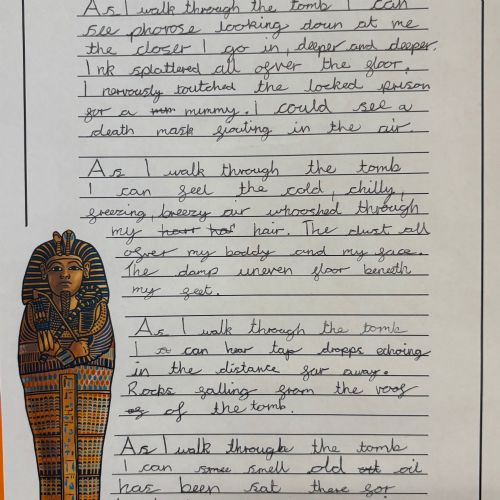 As I walk through the tomb I can
see pharose looking doun at me
the closer I go in, deeper and deeper.
Ink splattered all ofver the floor.
I nervously toutched the locked prison
for a mummy. I could see a
death mask floiting in the air.
As I walk through the tomb
I can feel the cold, chilly,
freezing, breezy air whooshed through
my hair. The dust all
ofver my boddy and my face.
The damp uneven floor beneeth
my feet.
As I walk through the tomb
I can hear tap dropps echoing
in the distance far away.
Rocks falling from the roof
of the tomb.
As I walk through the tomb
I can smell old oil
has been sat there for